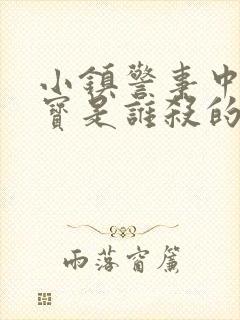 小鎮警事中
寶是誰殺的
雨落窗簾